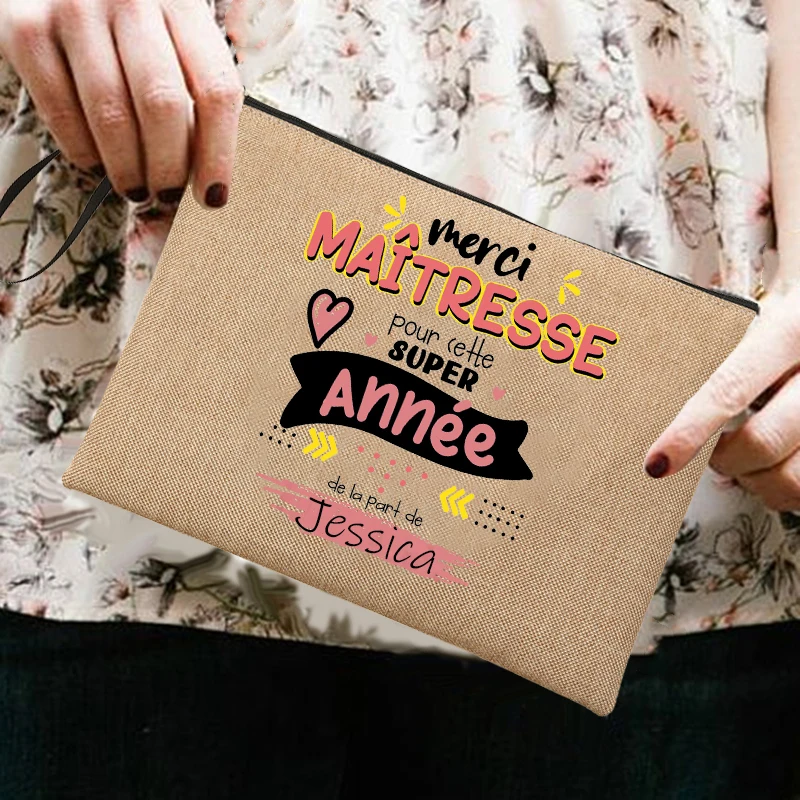 merci
MAÎTRESSE
pour cette
SUPER
Année
de la part de
Jessica